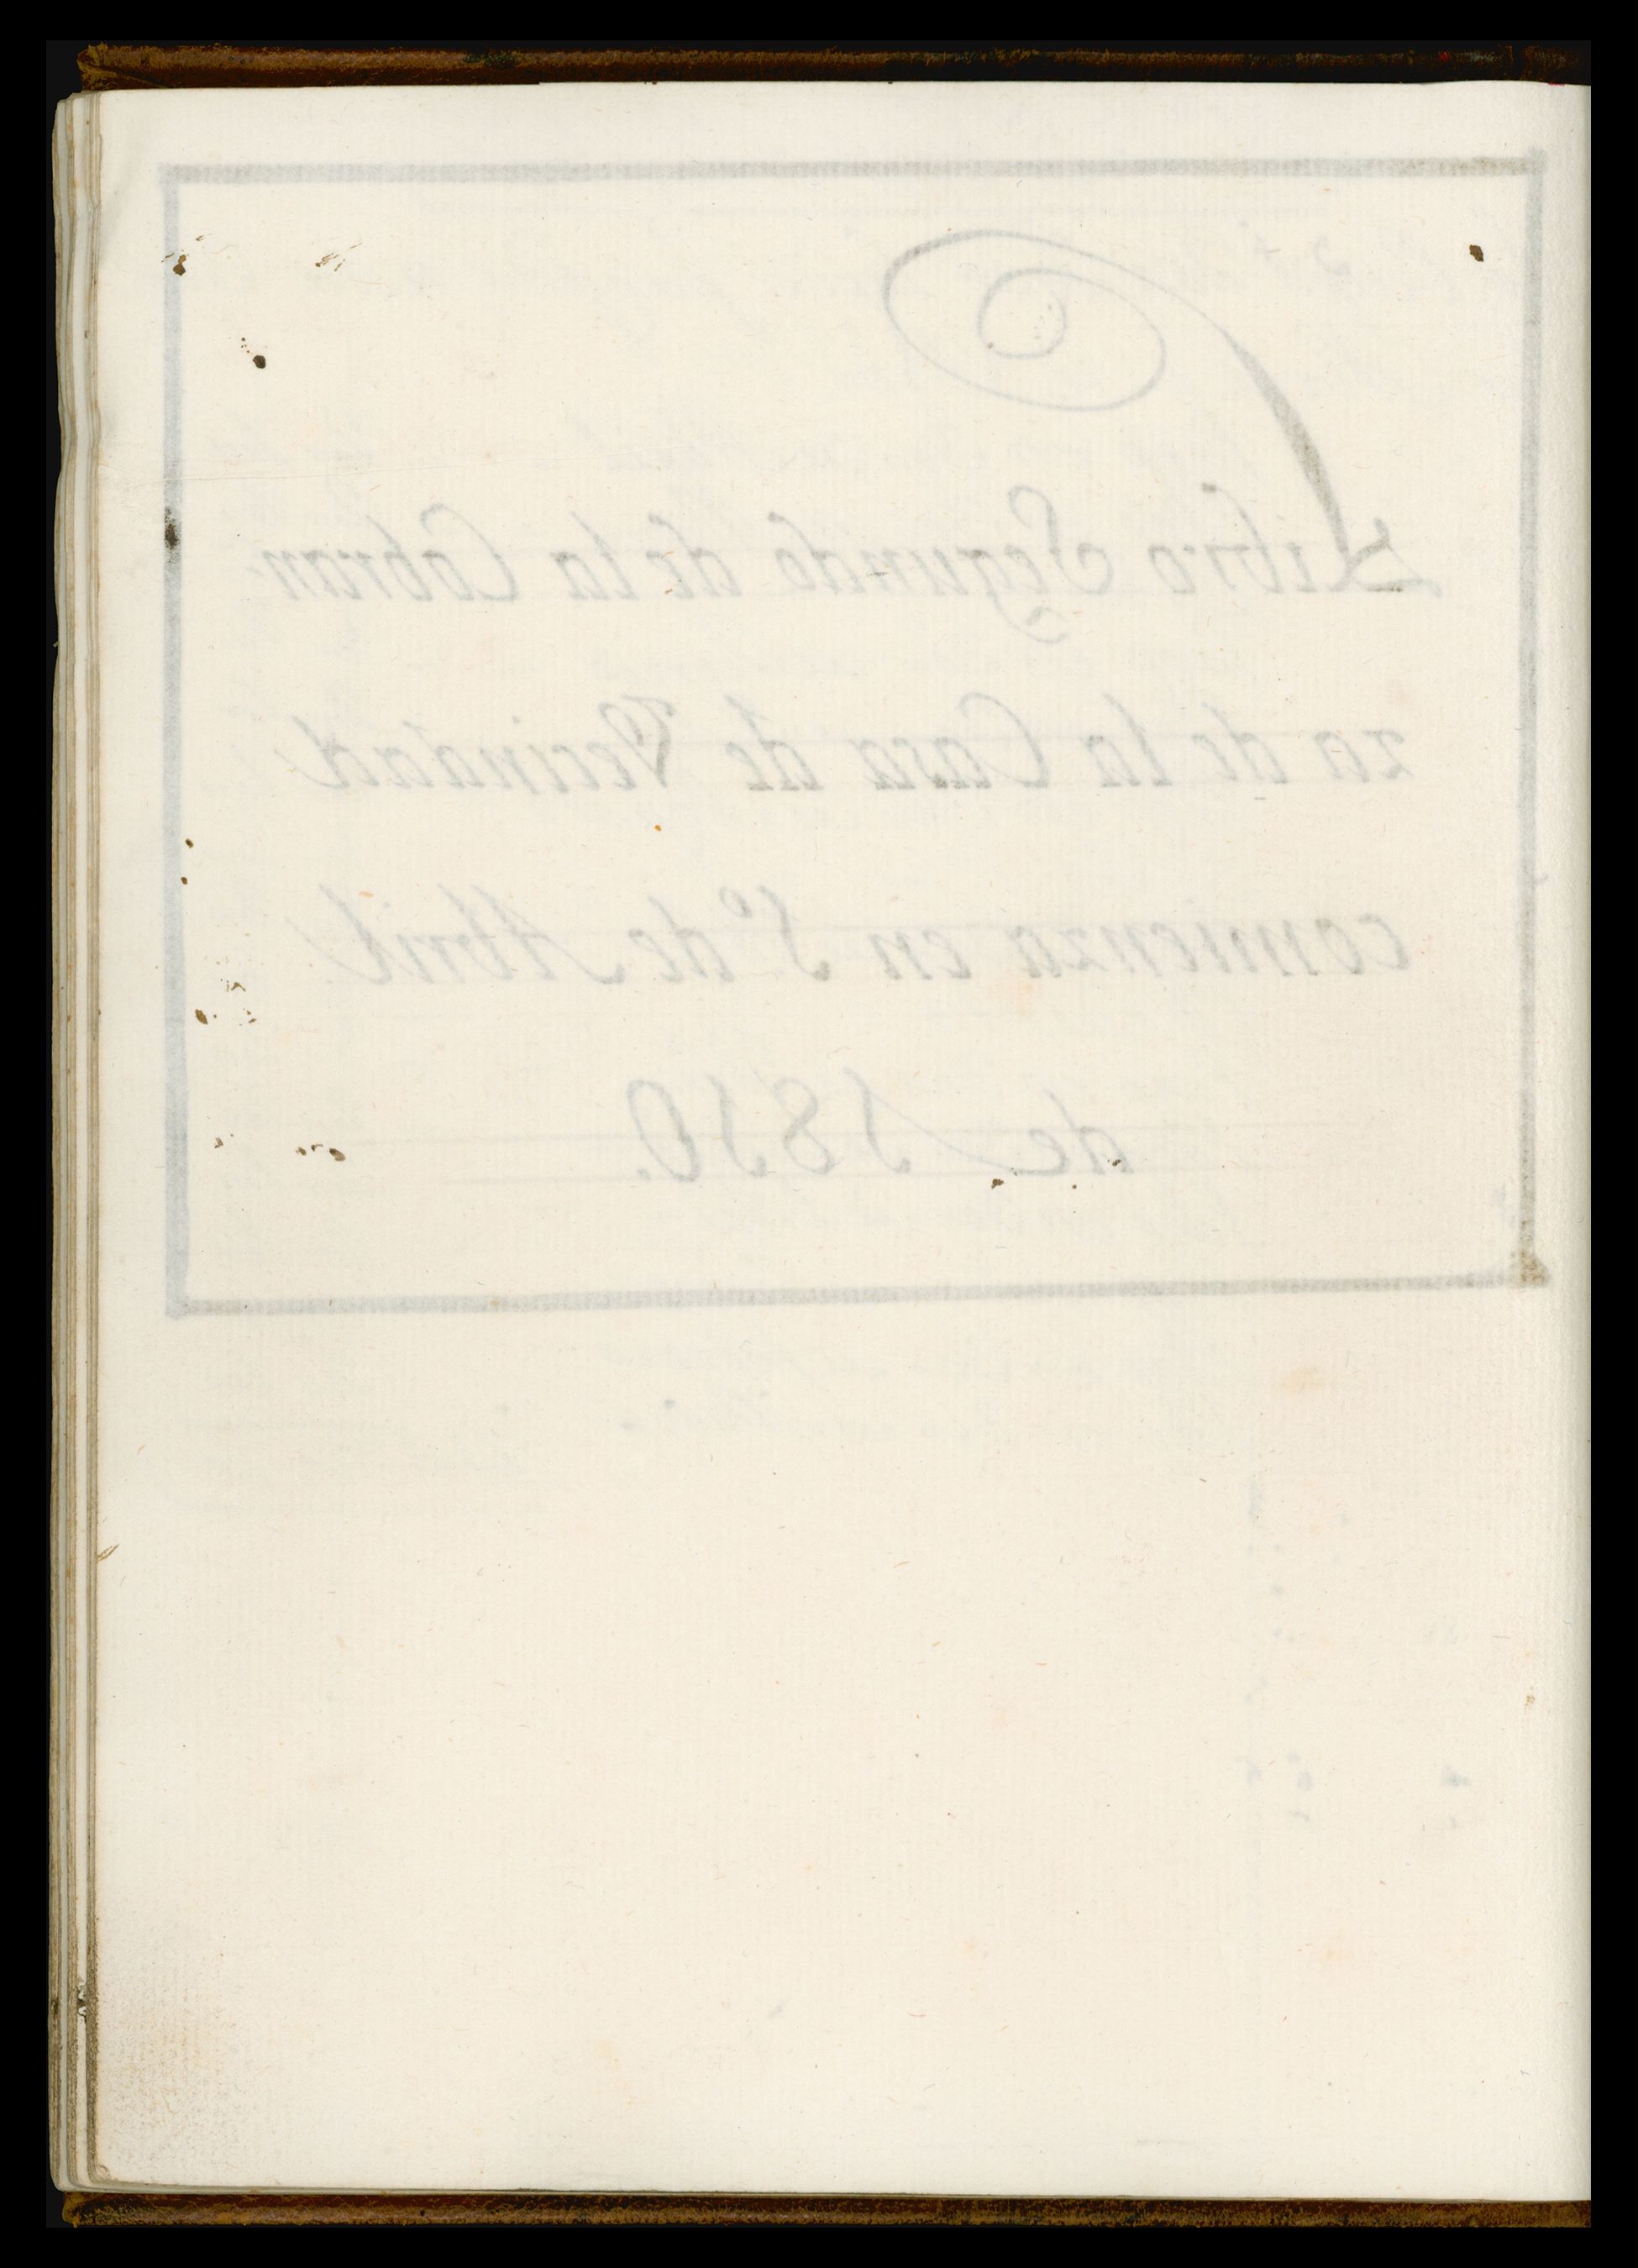 Libro Segundo de la Cobran-
za de la Casa de Vecindad
comienza en 1º de Abril
de 1810.